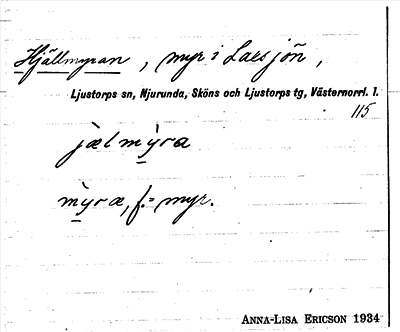 Hjällmyran, myr i Laxsjön,
Ljustorps sn, Njurunda, Sköns och Ljustorps tg, Västernorrl. l.
115
jælmỳra
mỳra, f. = myr.
ANNA-LISA ERICSON 1934